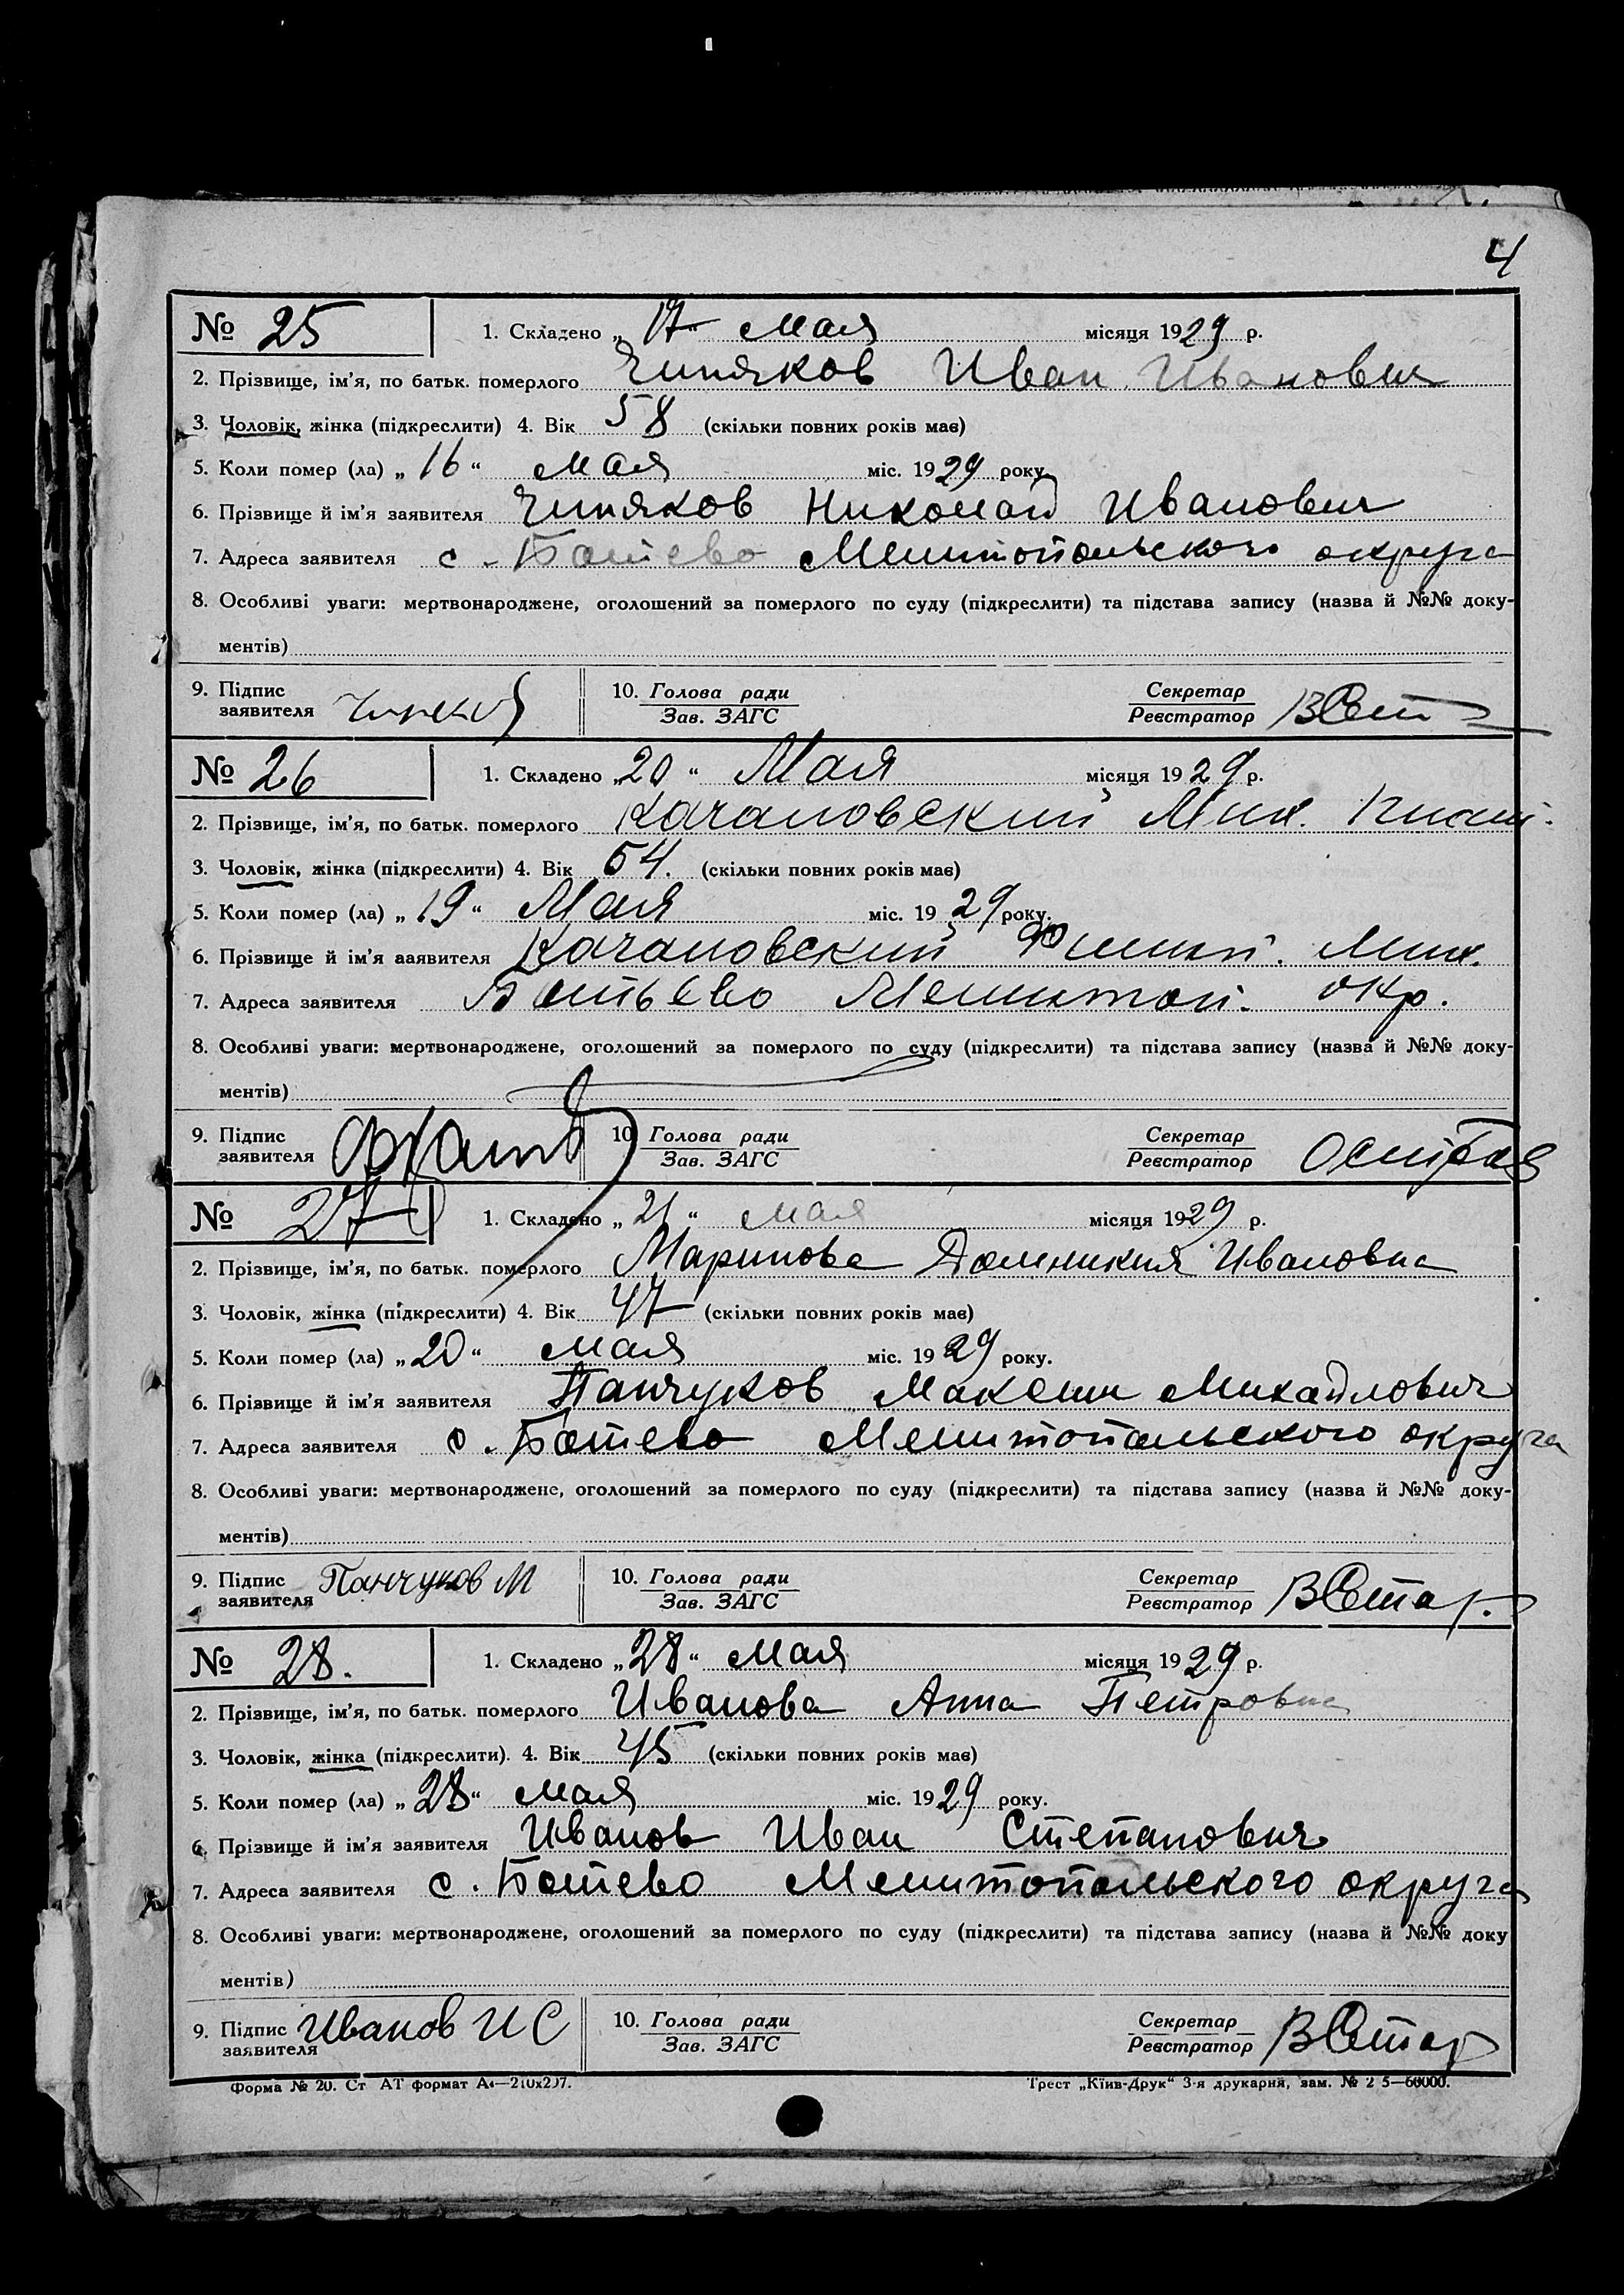 4
№ 25 1. Складено „17“ мая місяця 1929 р.
2. Прізвище, ім’я, по батьк. померлого Чипяков Иван Иванович
3. Чоловік, жінка (підкреслити) 4. Вік 58 (скільки повних років має)
5. Коли помер (ла) „16“ мая міс. 1929 року
6. Прізвище й ім’я заявителя Чипяков Николай Иванович
7. Адреса заявителя с. Ботево Мелитопольского округа
8. Особливі уваги: мертвонароджене, оголошений за померлого по суду (підкреслити) та підстава запису (назва й №№ доку-
ментів)
9. Підпис заявителя 10. Голова ради Зав. ЗАГС Секретар Реєстратор
№ 26 1. Складено „20“ Мая місяця 1929 р.
2. Прізвище, ім’я, по батьк. померлого Качановский Мих.
3. Чоловік, жінка (підкреслити) 4. Вік 54. (скільки повних років має)
5. Коли помер (ла) „19“ Мая міс. 1929 року.
6. Прізвище й ім’я заявителя Качановский Филип. Мих.
7. Адреса заявителя Ботьево Мелитоп. окр.
8. Особливі уваги: мертвонароджене, оголошений за померлого по суду (підкреслити) та підстава запису (назва й №№ доку-
ментів)
9. Підпис заявителя 10. Голова ради Зав. ЗАГС Секретар Реєстратор
№ 27 1. Складено „21“ мая місяця 1929 р.
2. Прізвище, ім’я, по батьк. померлого Маринова Домникия Ивановна
3. Чоловік, жінка (підкреслити) 4. Вік 47 (скільки повних років має)
5. Коли помер (ла) „20“ мая міс. 1929 року.
6. Прізвище й ім’я заявителя Панчуков Максим Михайлович
7. Адреса заявителя с. Ботево Мелитопольского округа
8. Особливі уваги: мертвонароджене, оголошений за померлого по суду (підкреслити) та підстава запису (назва й №№ доку-
ментів)
9. Підпис заявителя Панчуков М 10. Голова ради Зав. ЗАГС Секретар Реєстратор
№ 28. 1. Складено „28“ мая місяця 1929 р.
2. Прізвище, ім’я, по батьк. померлого Иванова Анна Петровна
3. Чоловік, жінка (підкреслити). 4. Вік 45 (скільки повних років має)
5. Коли помер (ла) „28“ мая міс. 1929 року.
6. Прізвище й ім’я заявителя Иванов Иван Степанович
7. Адреса заявителя с. Ботево Мелитопольского округа
8. Особливі уваги: мертвонароджене, оголошений за померлого по суду (підкреслити) та підстава запису (назва й №№ доку
ментів)
9. Підпис заявителя Иванов И С 10. Голова ради Зав. ЗАГС Секретар Реєстратор
Форма № 20. Ст АТ формат А4—210х297. Трест „Київ-Друк“ 3-я друкарня, зам. № 2 5—60000.